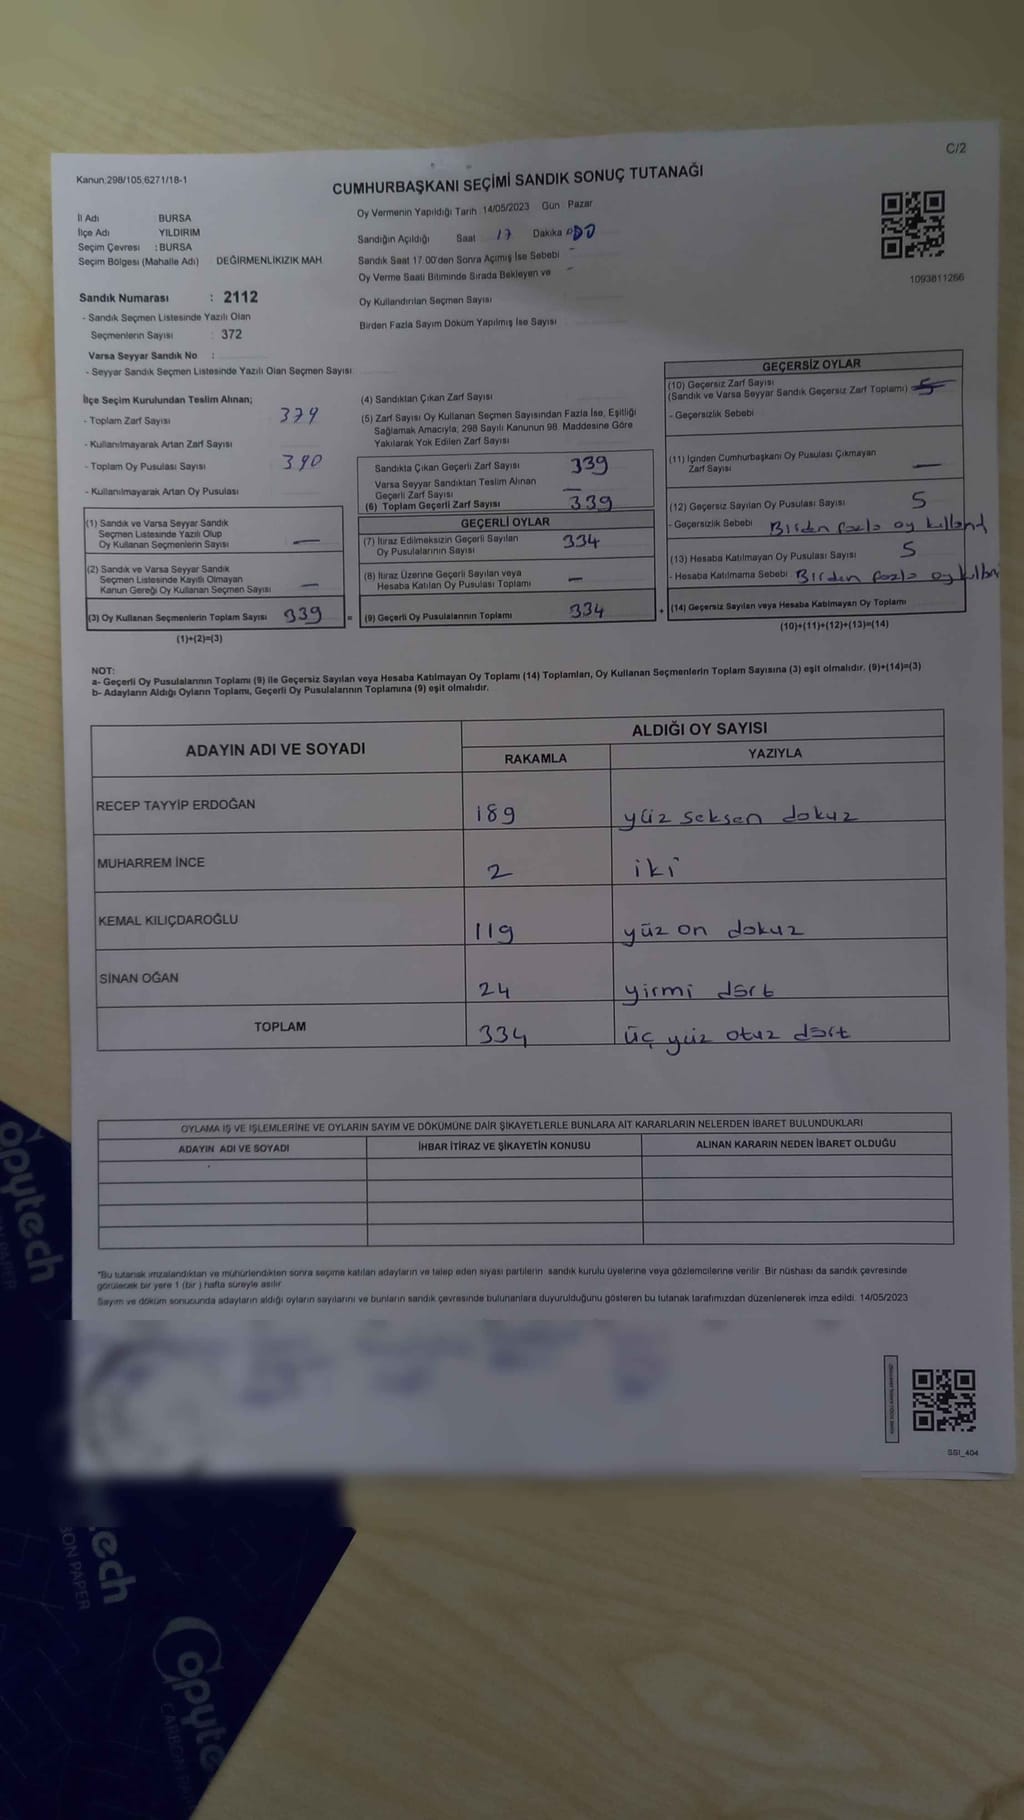 C/2
Kanun:298/105,6271/18-1
CUMHURBAŞKANI SEÇİMİ SANDIK SONUÇ TUTANAĞI
İl Adı BURSA
İlçe Adı YILDIRIM
Seçim Çevresi : BURSA
Seçim Bölgesi (Mahalle Adı) DEĞİRMENLİKIZIK MAH
Sandık Numarası : 2112
- Sandık Seçmen Listesinde Yazılı Olan
Seçmenlerin Sayısı : 372
Varsa Seyyar Sandık No :
- Seyyar Sandık Seçmen Listesinde Yazılı Olan Seçmen Sayısı
Oy Vermenin Yapıldığı Tarih 14/05/2023 Gün Pazar
Sandığın Açıldığı Saat 17 Dakika
Sandık Saat 17.00'den Sonra Açımış İse Sebebi -
Oy Verme Saati Bitiminde Sırada Bekleyen ve -
Oy Kullandırılan Seçmen Sayısı
Birden Fazla Sayım Döküm Yapılmış İse Sayısı
1093811266
İlçe Seçim Kurulundan Teslim Alınan;
- Toplam Zarf Sayısı 379
- Kullanılmayarak Artan Zarf Sayısı
- Toplam Oy Pusulası Sayısı 390
- Kullanılmayarak Artan Oy Pusulası
(1) Sandık ve Varsa Seyyar Sandık
Seçmen Listesinde Yazılı Olup
Oy Kullanan Seçmenlerin Sayısı —
(2) Sandık ve Varsa Seyyar Sandık
Seçmen Listesinde Kayıtlı Olmayan
Kanun Gereği Oy Kullanan Seçmen Sayısı —
(3) Oy Kullanan Seçmenlerin Toplam Sayısı 339 =
(1)+(2)=(3)
(4) Sandıktan Çıkan Zarf Sayısı
(5) Zarf Sayısı Oy Kullanan Seçmen Sayısından Fazla İse, Eşitliği
Sağlamak Amacıyla; 298 Sayılı Kanunun 98. Maddesine Göre
Yakılarak Yok Edilen Zarf Sayısı
Sandıkta Çıkan Geçerli Zarf Sayısı 339
Varsa Seyyar Sandıktan Teslim Alınan
Geçerli Zarf Sayısı —
(6) Toplam Geçerli Zarf Sayısı 339
GEÇERLİ OYLAR
(7) İtiraz Edilmeksizin Geçerli Sayılan
Oy Pusulalarının Sayısı 334
(8) İtiraz Üzerine Geçerli Sayılan veya
Hesaba Katılan Oy Pusulası Toplamı —
(9) Geçerli Oy Pusulalarının Toplamı 334 +
GEÇERSİZ OYLAR
(10) Geçersiz Zarf Sayısı
(Sandık ve Varsa Seyyar Sandık Geçersiz Zarf Toplamı)
- Geçersizlik Sebebi
(11) İçinden Cumhurbaşkanı Oy Pusulası Çıkmayan
Zarf Sayısı —
(12) Geçersiz Sayılan Oy Pusulası Sayısı 5
- Geçersizlik Sebebi Birden fazla oy kulland
(13) Hesaba Katılmayan Oy Pusulası Sayısı 5
- Hesaba Katılmama Sebebi Birden fazla oy
(14) Geçersiz Sayılan veya Hesaba Katılmayan Oy Toplamı
(10)+(11)+(12)+(13)=(14)
NOT:
a- Geçerli Oy Pusulalarının Toplamı (9) ile Geçersiz Sayılan veya Hesaba Katılmayan Oy Toplamı (14) Toplamları, Oy Kullanan Seçmenlerin Toplam Sayısına (3) eşit olmalıdır. (9)+(14)=(3)
b- Adayların Aldığı Oyların Toplamı, Geçerli Oy Pusulalarının Toplamına (9) eşit olmalıdır.
ADAYIN ADI VE SOYADI
ALDIĞI OY SAYISI
RAKAMLA YAZIYLA
RECEP TAYYİP ERDOĞAN 189 yüz seksen dokuz
MUHARREM İNCE 2 iki
KEMAL KILIÇDAROĞLU 119 yüz on dokuz
SİNAN OĞAN 24 yirmi dört
TOPLAM 334 üç yüz otuz dört
OYLAMA İŞ VE İŞLEMLERİNE VE OYLARIN SAYIM VE DÖKÜMÜNE DAİR ŞİKAYETLERLE BUNLARA AİT KARARLARIN NELERDEN İBARET BULUNDUKLARI
ADAYIN ADI VE SOYADI İHBAR İTİRAZ VE ŞİKAYETİN KONUSU ALINAN KARARIN NEDEN İBARET OLDUĞU
*Bu tutanak imzalandıktan ve mühürlendikten sonra seçime katılan adayların ve talep eden siyasi partilerin sandık kurulu üyelerine veya gözlemcilerine verilir. Bir nüshası da sandık çevresinde
görülecek bir yere 1 (bir) hafta süreyle asılır.
Sayım ve döküm sonucunda adayların aldığı oyların sayılarını ve bunların sandık çevresinde bulunanlara duyurulduğunu gösteren bu tutanak tarafımızdan düzenlenerek imza edildi. 14/05/2023
SSI_404
opytech
ON PAPER
tech
Copyte
CARBON PAPER